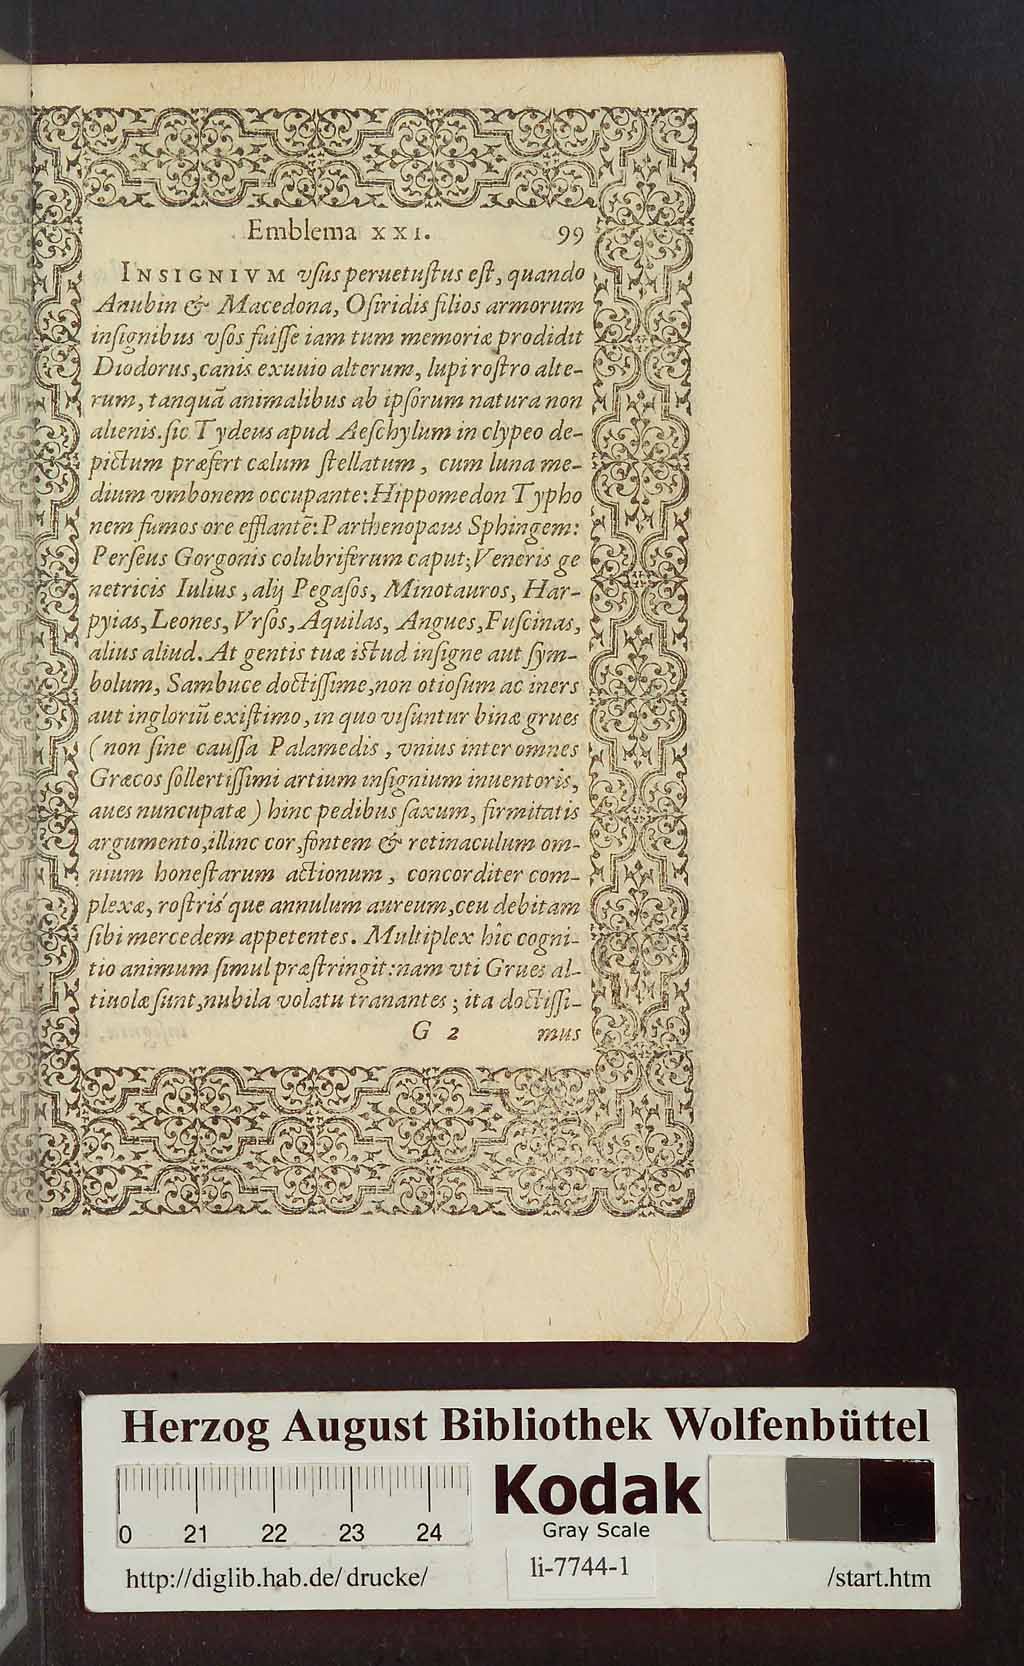 Emblema XXI. 99
INSIGNIVM vſus peruetuſtus eſt, quando
Anubin & Macedona, Oſiridis filios armorum
inſignibus vſos fuiſſe iam tum memoriæ prodidit
Diodorus, canis exuuio alterum, lupi roſtro alte-
rum, tanquā animalibus ab ipſorum natura non
alienis. ſic Tydeus apud Aeſchylum in clypeo de-
pictum præfert cælum ſtellatum, cum luna me-
dium vmbonem occupante: Hippomedon Typho
nem fumos ore efflantē: Parthenopæus Sphingem:
Perſeus Gorgonis colubriferum caput; Veneris ge
netricis Iulius, alij Pegaſos, Minotauros, Har-
pyias, Leones, Vrſos, Aquilas, Angues, Fuſcinas,
alius aliud. At gentis tuæ iſtud inſigne aut ſym-
bolum, Sambuce doctiſſime, non otioſum ac iners
aut ingloriū exiſtimo, in quo viſuntur binæ grues
(non ſine cauſſa Palamedis, vnius inter omnes
Græcos ſollertiſſimi artium inſignium inuentoris,
aues nuncupatæ) hinc pedibus ſaxum, firmitatis
argumento, illinc cor, fontem & retinaculum om-
nium honeſtarum actionum, concorditer com-
plexæ, roſtris que annulum aureum, ceu debitam
ſibi mercedem appetentes. Multiplex hîc cogni-
tio animum ſimul præſtringit: nam vti Grues al-
tiuolæ ſunt, nubila volatu tranantes; ita doctiſſi-
G 2 mus
Herzog August Bibliothek Wolfenbüttel
0 21 22 23 24
Kodak
Gray Scale
http://diglib.hab.de/drucke/ li-7744-1 /start.htm